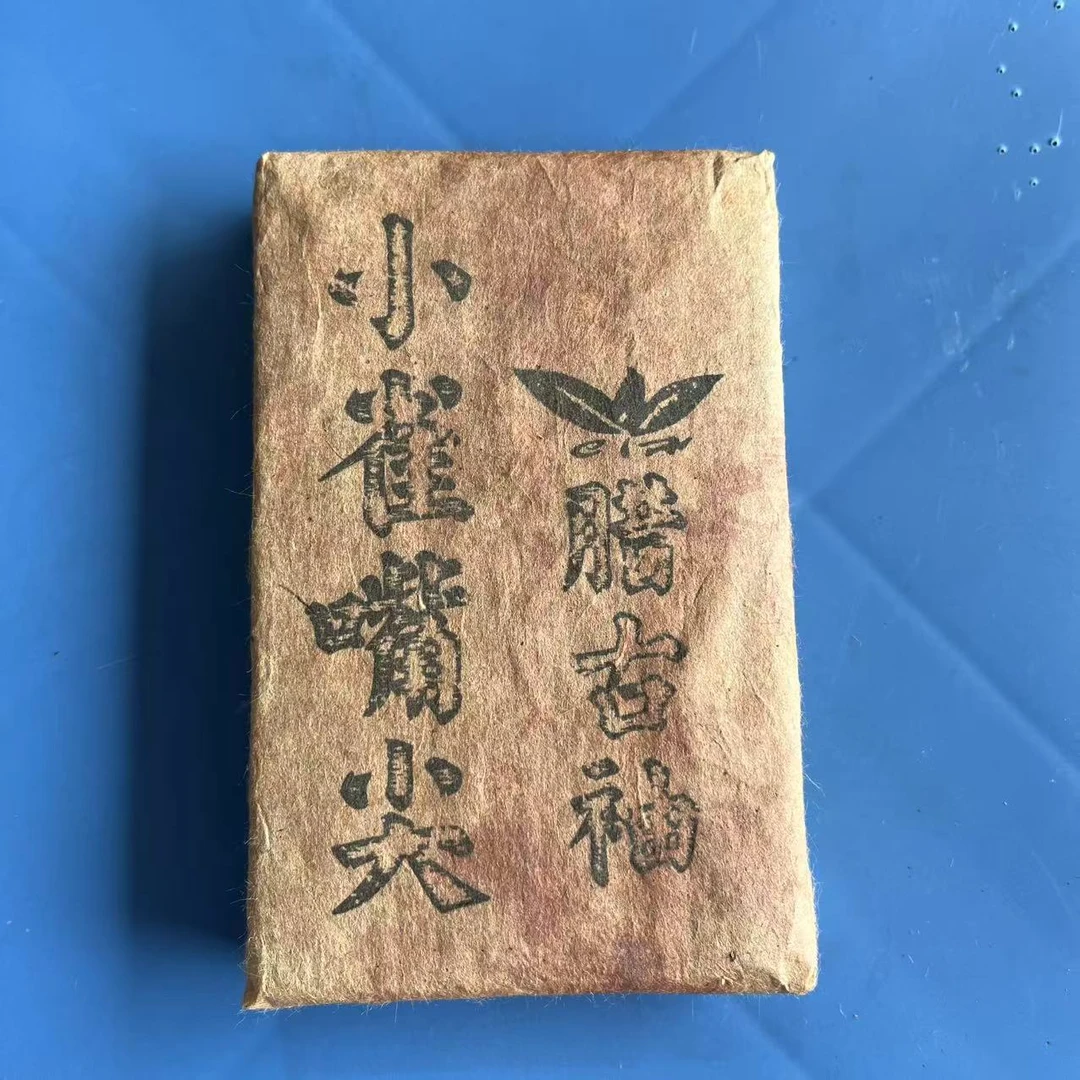 腊古袖
小雀嘴尖